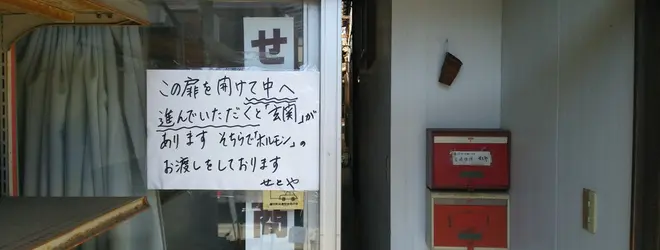 せ
この扉を開けて中へ
進んでいただくと「玄関」が
あります そちらで「ホルモン」の
お渡しをしております
せとや
問